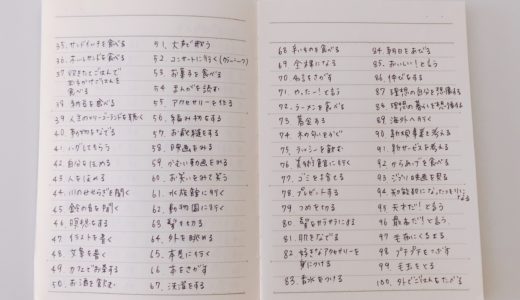 35. サンドイッチを食べる
36. オムレサンドを食べる
37. 炊きたてごはんで
おかかけごはんを
食べる
38. 納豆を食べる
39. 人生のメリーゴーランドを聴く
40. 動物をなでる
41. ハグしてもらう
42. 自分をほめる
43. 人をほめる
44. 川のせせらぎを聞く
45. 鈴の音を聞く
46. 瞑想する
47. イラストを書く
48. 文章を書く
49. カフェでお茶する
50. お酒を飲む
51. 大声で歌う
52. コンサートに行く
53. お菓子を食べる
54. まんがを読む
55. アクセサリーを作る
56. 編み物をする
57. お裁縫をする
58. 映画をみる
59. かわいい動画をみる
60. お笑いをみて笑う
61. 水族館に行く
62. 動物園に行く
63. 髪を切る
64. 外を眺める
65. 本屋に行く
66. 本をさがす
67. 洗濯をする
68. 辛いものを食べる
69. 全裸になる
70. 名言をさがす
71. やったー！と言う
72. ラーメンを食べる
73. 募金する
74. 木の匂いをかぐ
75. ラッシーを飲む
76. 美術館に行く
77. ゴミを捨てる
78. プレゼントする
79. つめを切る
80. 髪をサラサラにする
81. 肌をなでる
82. 好きなアクセサリーを
身につける
83. 香水をつける
84. 朝日をあびる
85. おいしい！と言う
86. 伸びをする
87. 理想の自分を想像する
88. 理想の暮らしを想像する
89. 海外へ行く
90. 新規事業を考える
91. 新サービスを考える
92. からあげを食べる
93. ジブリ映画を見る
94. 知能犯になったつもりになる
95. 天才だ！と言う
96. 最高だ！と言う
97. 毛布にくるまる
98. プチプチをつぶす
99. 毛玉をとる
100. 外でごはんをたべる